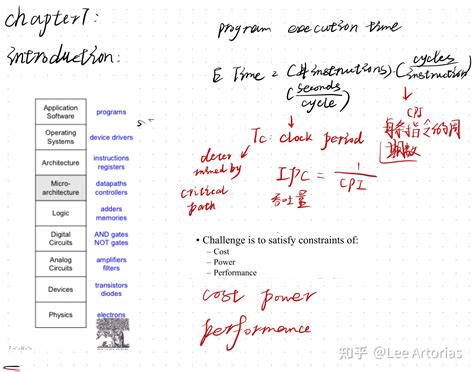 chapter7:
introduction:
program execution time
E Time = (# instructions) · (cycles/instruction)
(seconds/cycle)
CPI
每条指令的周
期数
Tc: clock period
deter
mined by
critical
path
IPC = 1/CPI
吞吐量
Application Software programs
Operating Systems device drivers
Architecture instructions registers
Micro-architecture datapaths controllers
Logic adders memories
Digital Circuits AND gates NOT gates
Analog Circuits amplifiers filters
Devices transistors diodes
Physics electrons
• Challenge is to satisfy constraints of:
– Cost
– Power
– Performance
cost power
performance
知乎 @Lee Artorias